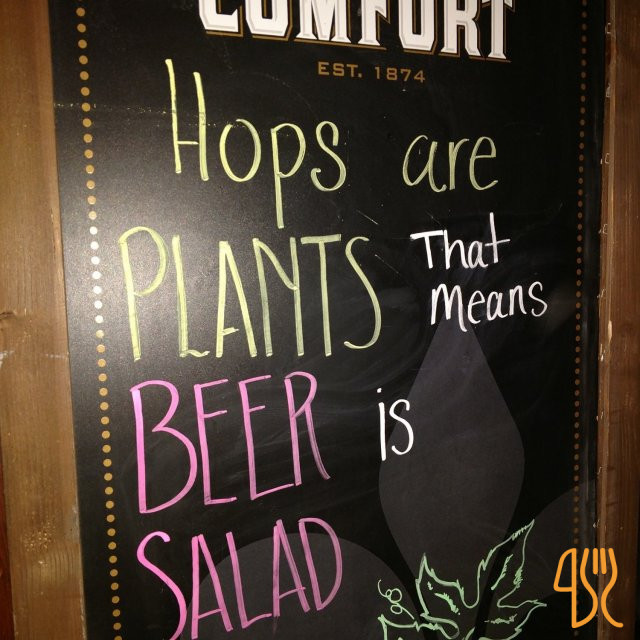 COMFORT
EST. 1874
Hops are
PLANTS That
means
BEER is
SALAD